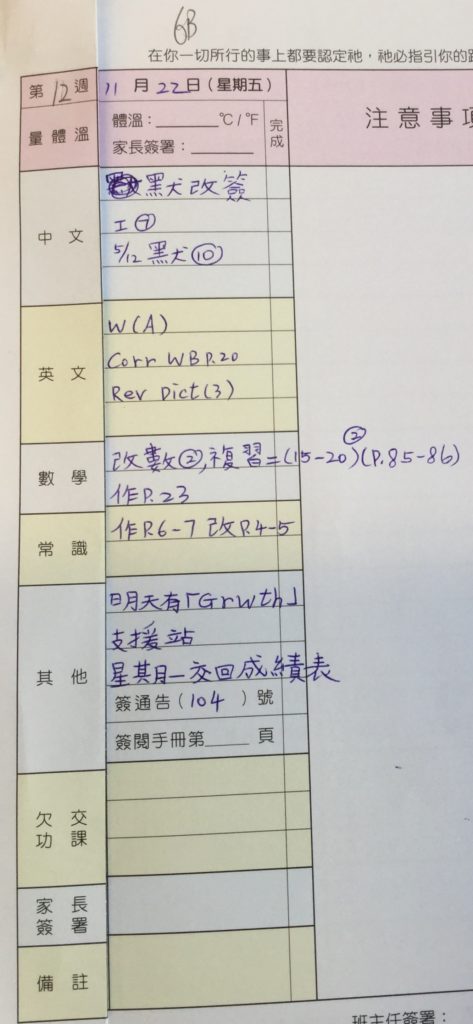 6B
在你一切所行的事上都要認定祂，祂必指引你的路
第12週 11月22日(星期五)
量體溫 體溫：______℃/℉ 完成 注意事項
家長簽署：______
中文 黑犬改簽
工⑦
5/12 黑犬⑩
英文 W(A)
Corr WB P.20
Rev Dict(3)
數學 改數②,複習二(15-20)②(P.85-86)
作P.23
常識 作P.6-7 改P.4-5
其他 明天有「Grwth」
支援站
星期一交回成績表
簽通告(104)號
簽閱手冊第____頁
欠交功課
家長簽署
備註
班主任簽署：